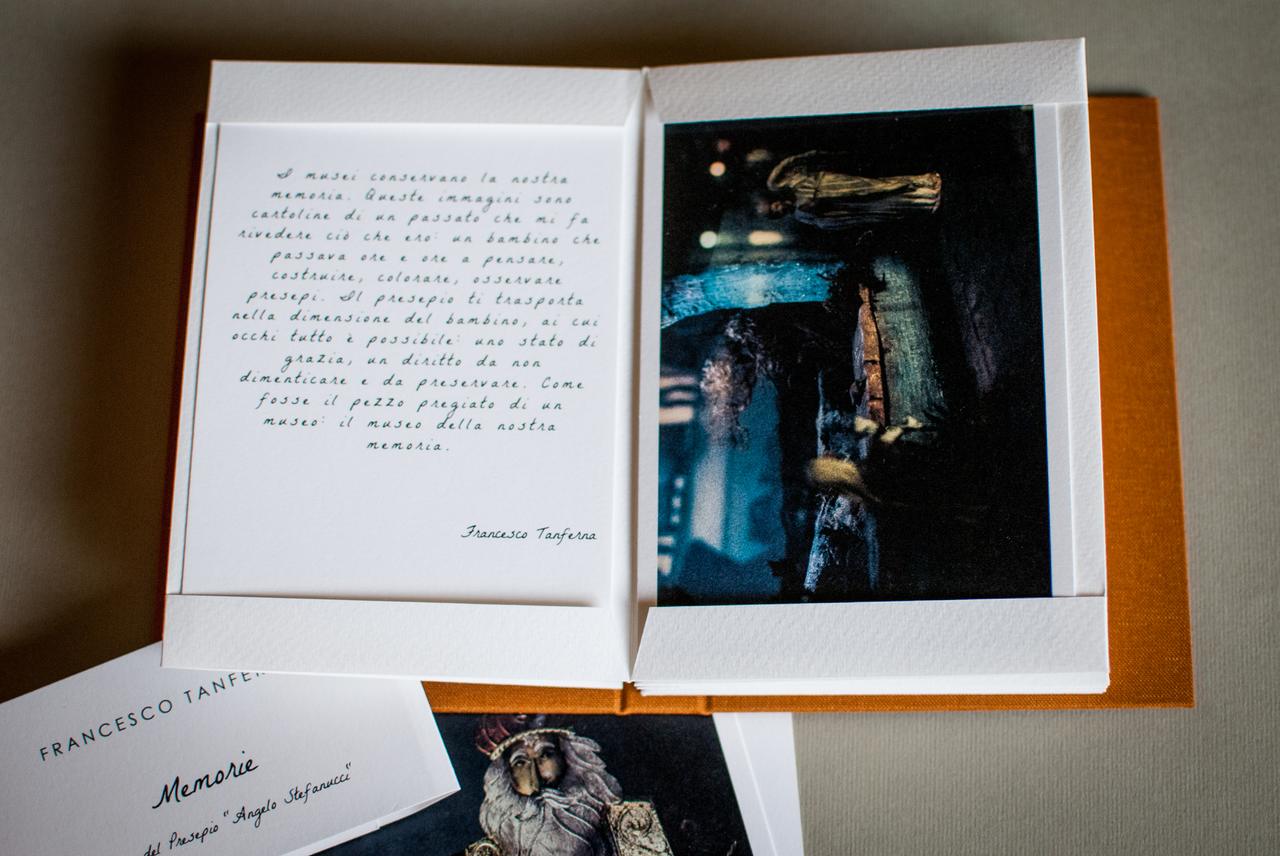 I musei conservano la nostra
memoria. Queste immagini sono
cartoline di un passato che mi fa
rivedere ciò che ero: un bambino che
passava ore e ore a pensare,
costruire, colorare, osservare
presepi. Il presepio ti trasporta
nella dimensione del bambino, ai cui
occhi tutto è possibile: uno stato di
grazia, un diritto da non
dimenticare e da preservare. Come
fosse il pezzo pregiato di un
museo: il museo della nostra
memoria.
Francesco Tanferna
FRANCESCO
Memorie
del Presepio "Angelo Stefanucci"